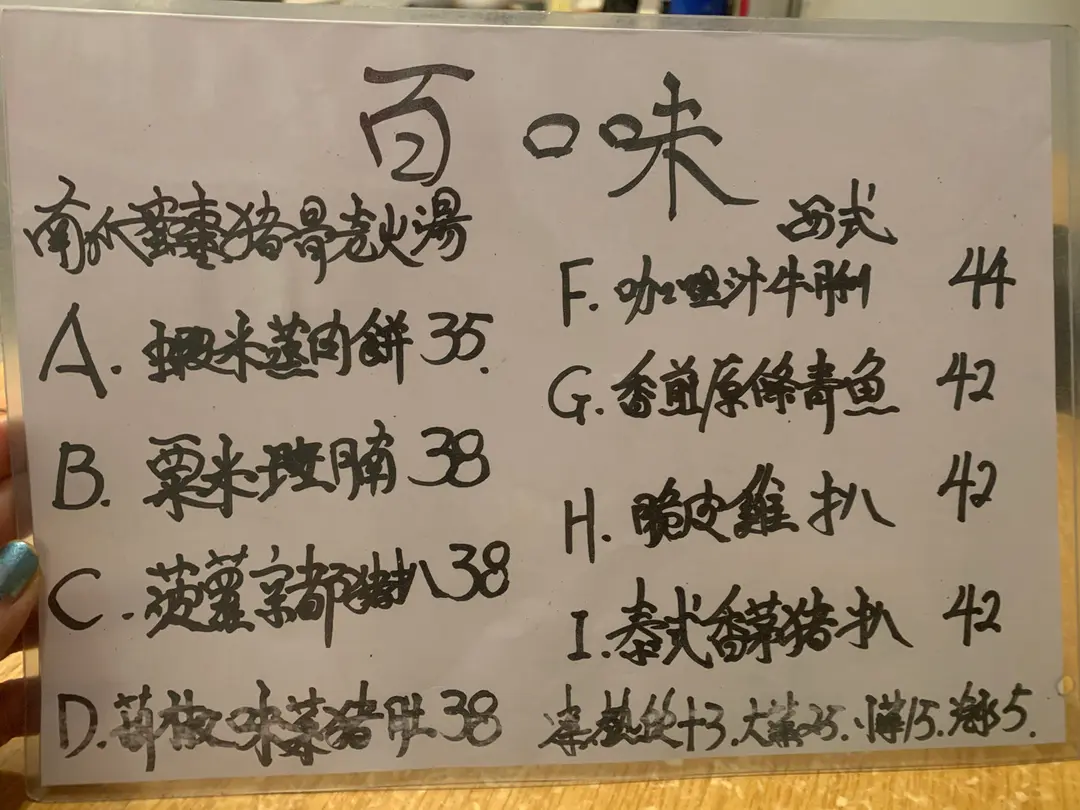 百口味
南瓜蜜棗猪骨老火湯
A. 蝦米蒸肉餅 35.
B. 粟米斑腩 38
C. 菠蘿京都猪扒 38
D. 味菜猪肚 38
西式
F. 咖喱汁牛脷 44
G. 香煎原條青魚 42
H. 脆皮雞扒 42
I. 泰式香草猪扒 42
熱飲+3. 大 25. 15. 5.